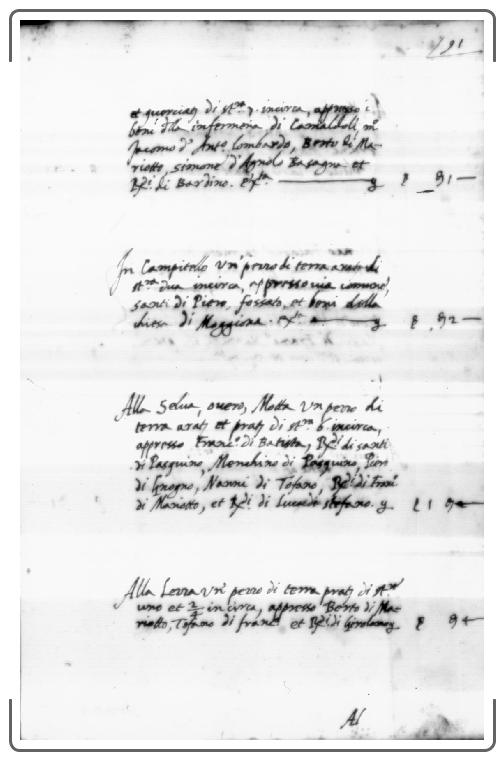 191
et querciat di st.ra 7. incirca, appresso i
beni dlla infermeria di Camaldoli, m.o
Jacomo d' Ant.o lombardo, Berto di Ma-
riotto, Simone d'Agnolo Basagna et
Rx.i di Bardino. &x.ta y 91
In Campitello un' pezzo di terra arat. di
st.ra dua incirca, appresso via comune,
santi di Piero, fossato, et beni della
chiesa di Moggiona. &x.ta y 92
Alla Selva, overo, Motta un pezzo di
terra arat. et prat. di st.ra 6. incirca,
appresso Franc.o di Batista, Rx.i di santi
di Pasquino, Menchino di Pasquino, Pier
di Gnogno, Nanni di Tofano, Rx.i di Fran.o
di Mariotto, et Rx.i di Luca di stefano. y 1 94
Alla Lezza un' pezzo di terra prat. di st.ro
uno et 2/4 in circa, appresso Berto di Ma-
riotto, Tofano di franc.o et Rx.i di Girolamo y 94
Al